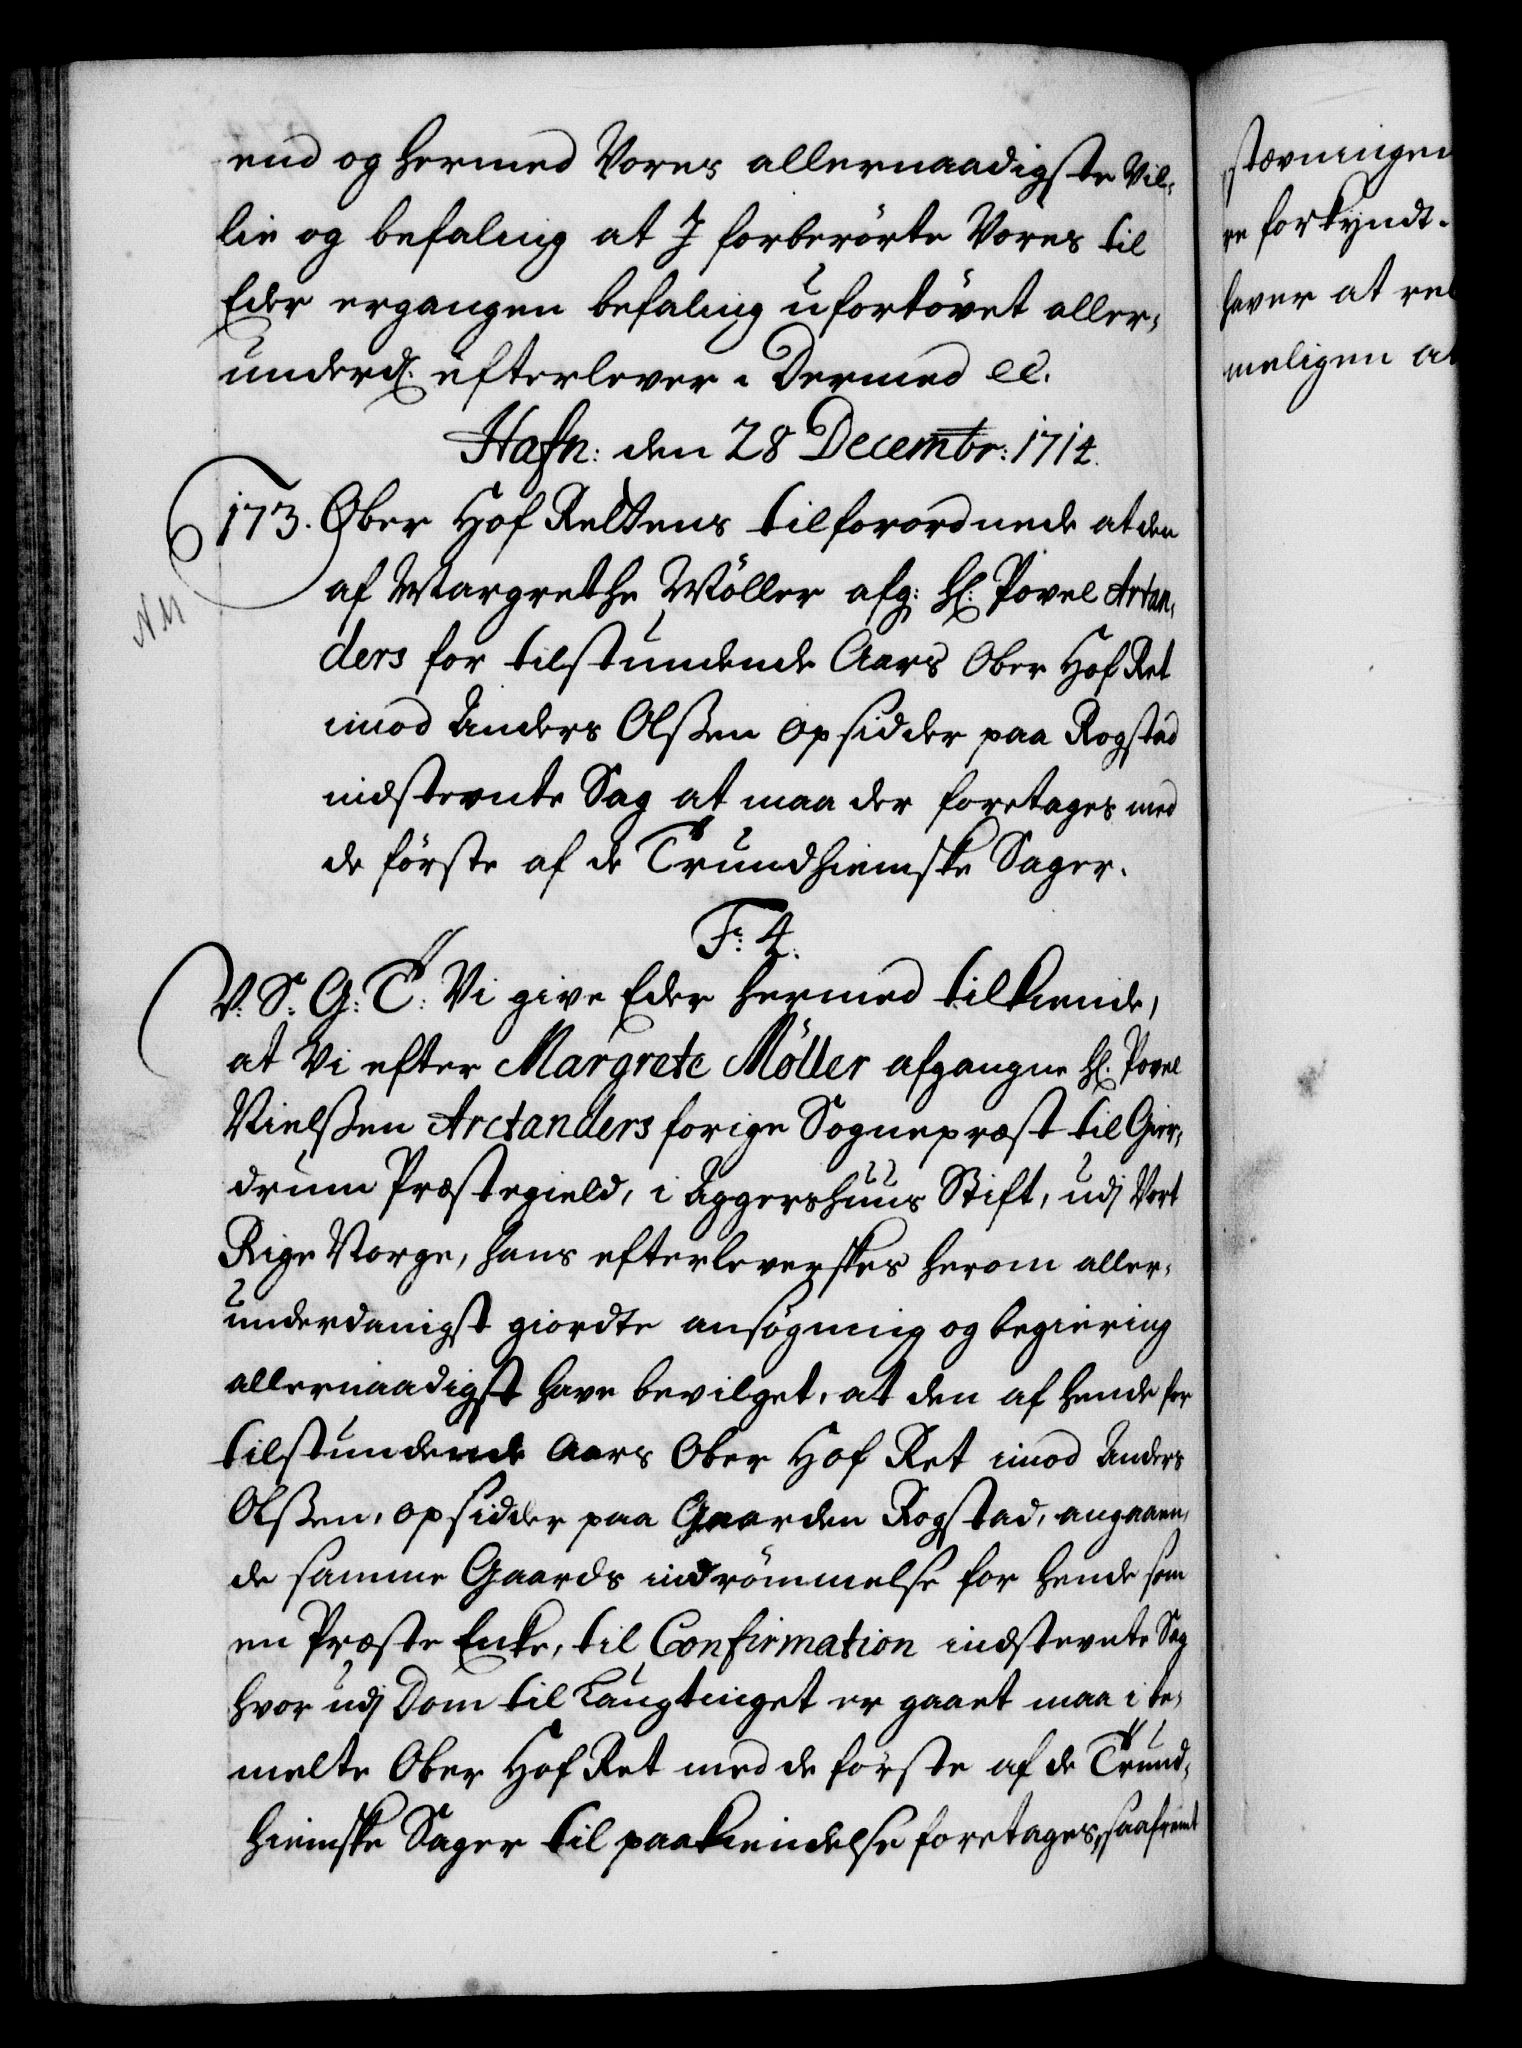 end og hermed Vores allernaadigste Vil-
lie og befaling at I forberörte Vores til
Eder ergangen befaling ufortövet aller-
underd. efterlever. Dermed etc.
Hafn: den 28 Decembr: 1714.
173. Ober Hof Rettens tilforordnede at den
af Margrethe Möller afg: Hl. Povel Arctan-
ders for tilstundende Aars Ober Hof Ret
imod Anders Olssen opsidder paa Rogstad
indstevnte Sag at maa der foretages med
de förste af de Trundhiemske Sager.
NM
F: 4.
V: S: G: T: Vi give Eder hermed tilkiende,
at Vi efter Margrete Möller afgangne Hl. Povel
Nielssen Arctanders forige Sognepræst til Gier-
drum Præstegield, i Aggershuus Stift, udj Vort
Rige Norge, hans efterleverskes herom aller-
underdanigst giordte ansögning og begiering
allernaadigst have bevilget, at den af hende for
tilstundende Aars Ober Hof Ret imod Anders
Olssen, opsidder paa Gaarden Rogstad, angaaen-
de samme Gaards indrömmelse for hende som
en Præste Enke, til Confirmation indstevnte Sag
hvor udj Dom til Laugtinget er gaaet maa i be-
melte Ober Hof Ret med de förste af de Trund-
hiemske Sager til paakiendelse foretages, saafremt
stævningen
re forkyndt.
haver at ret
meligen at